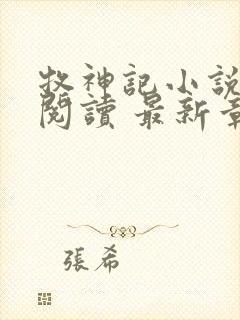 牧神記小說
閱讀 最新章
張希